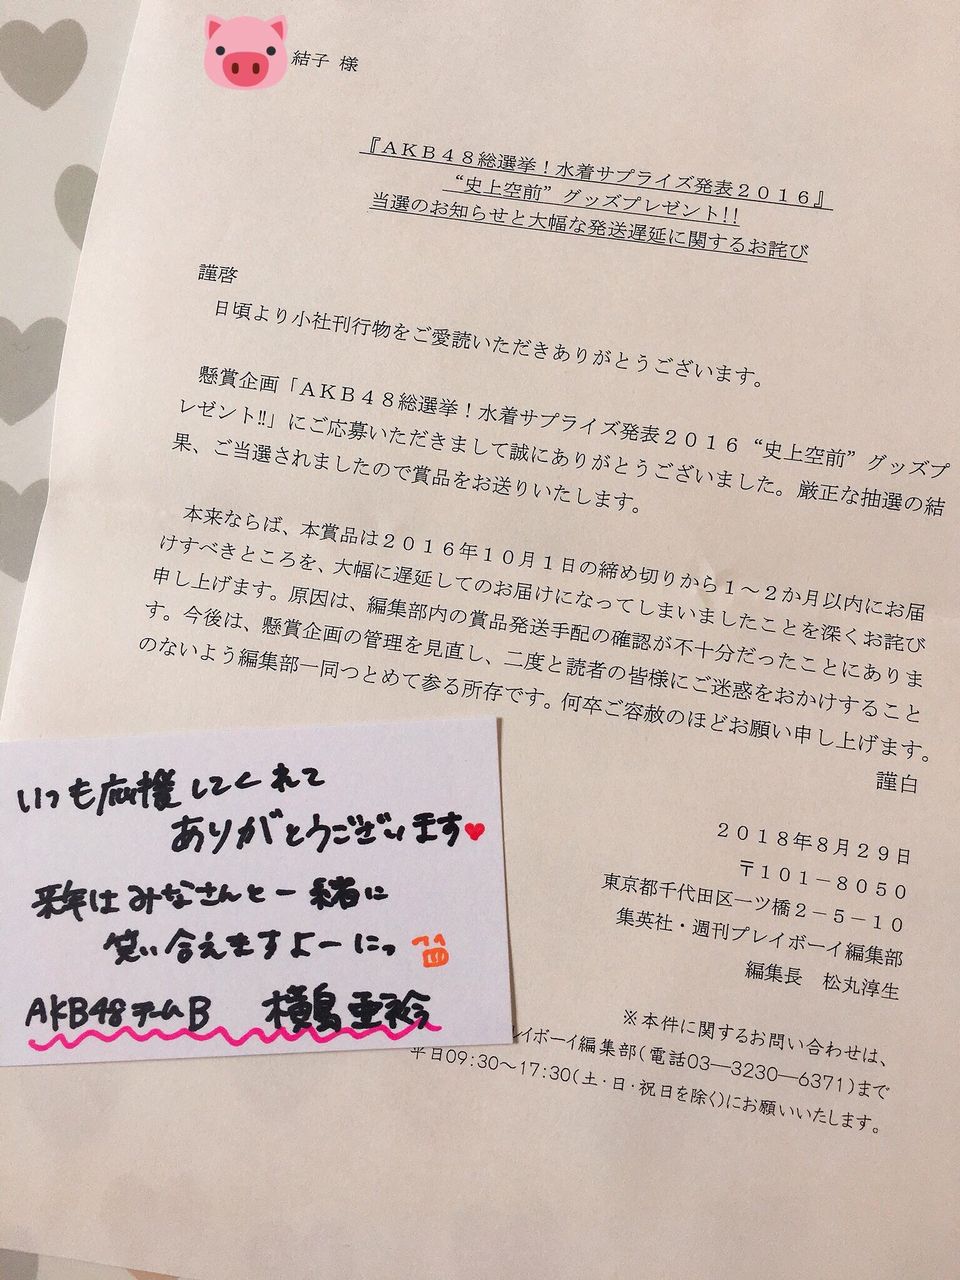 結子 様
『ＡＫＢ４８総選挙！水着サプライズ発表２０１６』
“史上空前”グッズプレゼント!!
当選のお知らせと大幅な発送遅延に関するお詫び
謹啓
日頃より小社刊行物をご愛読いただきありがとうございます。
懸賞企画「ＡＫＢ４８総選挙！水着サプライズ発表２０１６“史上空前”グッズプ
レゼント!!」にご応募いただきまして誠にありがとうございました。厳正な抽選の結
果、ご当選されましたので賞品をお送りいたします。
本来ならば、本賞品は２０１６年１０月１日の締め切りから１～２か月以内にお届
けすべきところを、大幅に遅延してのお届けになってしまいましたことを深くお詫び
申し上げます。原因は、編集部内の賞品発送手配の確認が不十分だったことにありま
す。今後は、懸賞企画の管理を見直し、二度と読者の皆様にご迷惑をおかけすること
のないよう編集部一同つとめて参る所存です。何卒ご容赦のほどお願い申し上げます。
謹白
２０１８年８月２９日
〒１０１－８０５０
東京都千代田区一ツ橋２－５－１０
集英社・週刊プレイボーイ編集部
編集長　松丸淳生
※本件に関するお問い合わせは、
レイボーイ編集部(電話03―3230―6371)まで
平日09:30～17:30(土・日・祝日を除く)にお願いいたします。
いつも応援してくれて
ありがとうございます
来年はみなさんと一緒に
笑い合えますよーにっ
AKB48チームB　横島亜衿